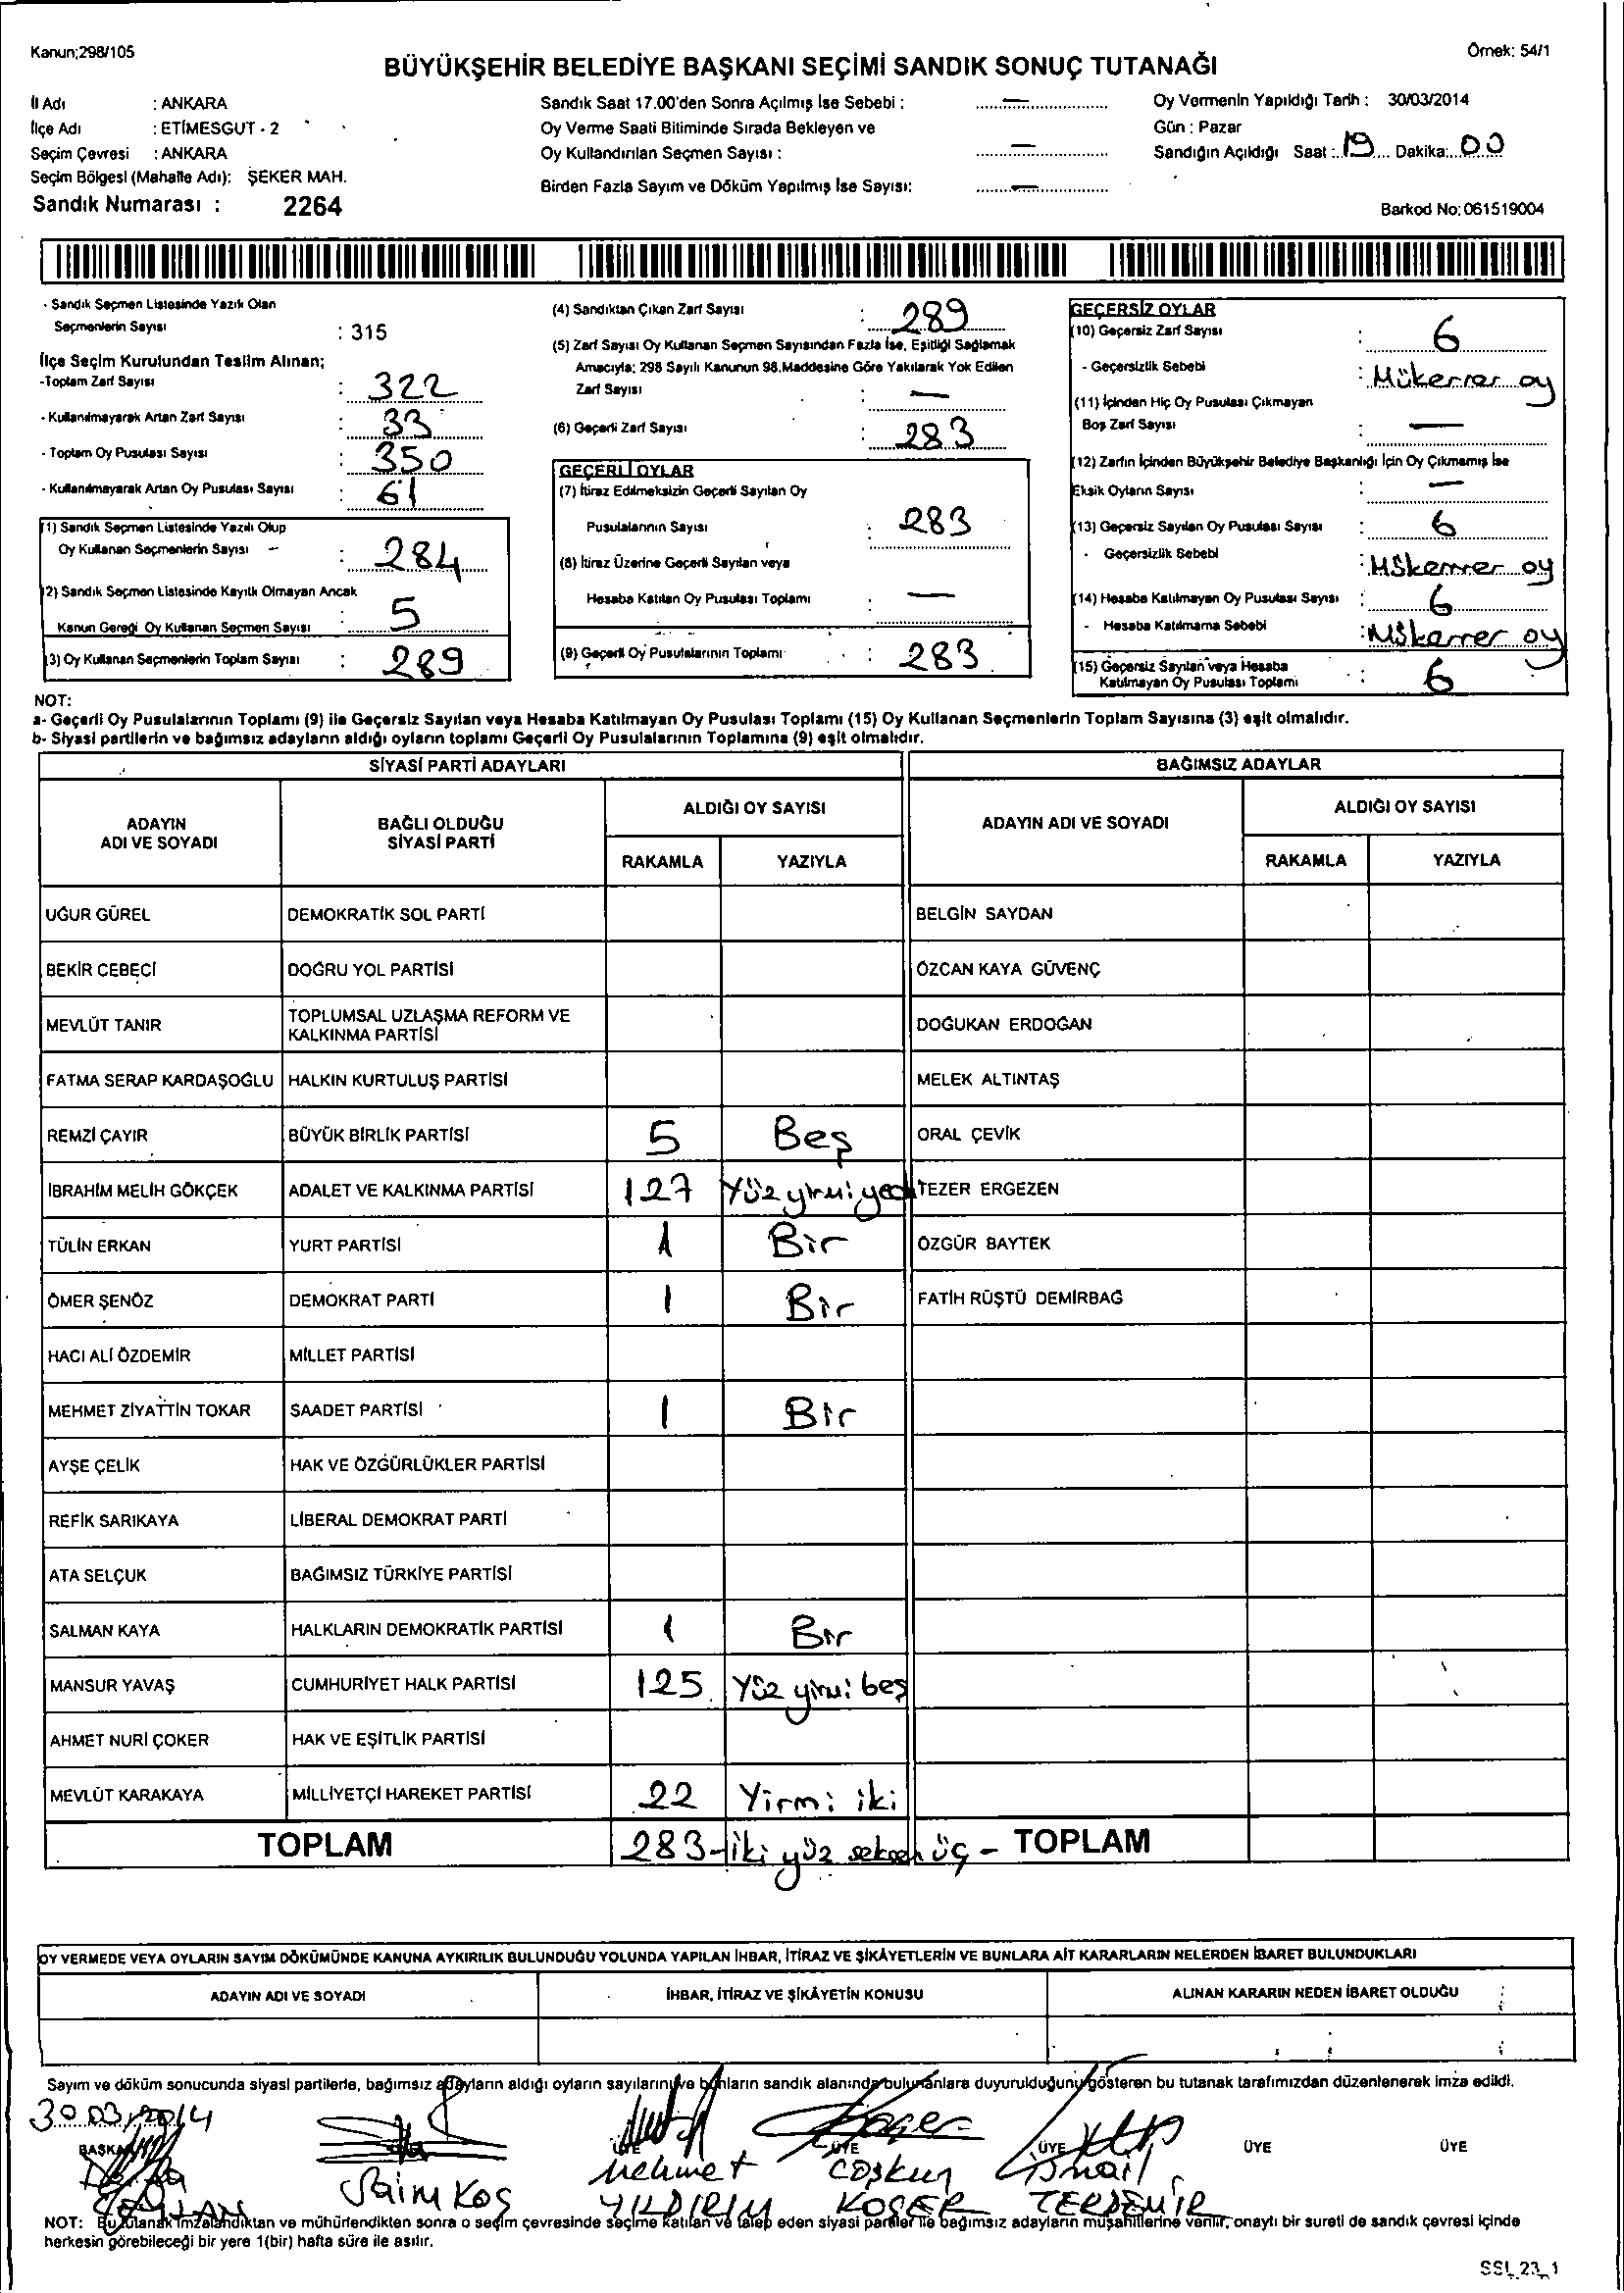 Kanun;298/105
Örnek: 54/1
BÜYÜKŞEHİR BELEDİYE BAŞKANI SEÇİMİ SANDIK SONUÇ TUTANAĞI
İl Adı : ANKARA
İlçe Adı : ETİMESGUT - 2
Seçim Çevresi : ANKARA
Seçim Bölgesi (Mahalle Adı): ŞEKER MAH.
Sandık Numarası : 2264
Sandık Saat 17.00'den Sonra Açılmış İse Sebebi : —
Oy Verme Saati Bitiminde Sırada Bekleyen ve
Oy Kullandırılan Seçmen Sayısı : —
Birden Fazla Sayım ve Döküm Yapılmış İse Sayısı: —
Oy Vermenin Yapıldığı Tarih : 30/03/2014
Gün : Pazar
Sandığın Açıldığı Saat : 19 Dakika: 00
Barkod No: 061519004
- Sandık Seçmen Listesinde Yazılı Olan
Seçmenlerin Sayısı : 315
İlçe Seçim Kurulundan Teslim Alınan;
-Toplam Zarf Sayısı : 322
- Kullanılmayarak Artan Zarf Sayısı : 33
- Toplam Oy Pusulası Sayısı : 350
- Kullanılmayarak Artan Oy Pusulası Sayısı : 61
(1) Sandık Seçmen Listesinde Yazılı Olup
Oy Kullanan Seçmenlerin Sayısı : 284
(2) Sandık Seçmen Listesinde Kayıtlı Olmayan Ancak
Kanun Gereği Oy Kullanan Seçmen Sayısı : 5
(3) Oy Kullanan Seçmenlerin Toplam Sayısı : 289
(4) Sandıktan Çıkan Zarf Sayısı : 289
(5) Zarf Sayısı Oy Kullanan Seçmen Sayısından Fazla İse, Eşitliği Sağlamak
Amacıyla; 298 Sayılı Kanunun 98.Maddesine Göre Yakılarak Yok Edilen
Zarf Sayısı : —
(6) Geçerli Zarf Sayısı : 283
GEÇERLİ OYLAR
(7) İtiraz Edilmeksizin Geçerli Sayılan Oy
Pusulalarının Sayısı : 283
(8) İtiraz Üzerine Geçerli Sayılan veya
Hesaba Katılan Oy Pusulası Toplamı : —
(9) Geçerli Oy Pusulalarının Toplamı : 283
GEÇERSİZ OYLAR
(10) Geçersiz Zarf Sayısı : 6
- Geçersizlik Sebebi : Mükerrer oy
(11) İçinden Hiç Oy Pusulası Çıkmayan
Boş Zarf Sayısı : —
(12) Zarfın İçinden Büyükşehir Belediye Başkanlığı İçin Oy Çıkmamış İse
Eksik Oyların Sayısı : —
(13) Geçersiz Sayılan Oy Pusulası Sayısı : 6
- Geçersizlik Sebebi : Mükerrer oy
(14) Hesaba Katılmayan Oy Pusulası Sayısı : 6
- Hesaba Katılmama Sebebi : Mükerrer oy
(15) Geçersiz Sayılan veya Hesaba
Katılmayan Oy Pusulası Toplamı : 6
NOT:
a- Geçerli Oy Pusulalarının Toplamı (9) ile Geçersiz Sayılan veya Hesaba Katılmayan Oy Pusulası Toplamı (15) Oy Kullanan Seçmenlerin Toplam Sayısına (3) eşit olmalıdır.
b- Siyasi partilerin ve bağımsız adayların aldığı oyların toplamı Geçerli Oy Pusulalarının Toplamına (9) eşit olmalıdır.
SİYASİ PARTİ ADAYLARI BAĞIMSIZ ADAYLAR
ADAYIN ADI VE SOYADI BAĞLI OLDUĞU SİYASİ PARTİ ALDIĞI OY SAYISI ADAYIN ADI VE SOYADI ALDIĞI OY SAYISI
RAKAMLA YAZIYLA RAKAMLA YAZIYLA
UĞUR GÜREL DEMOKRATİK SOL PARTİ BELGİN SAYDAN
BEKİR CEBECİ DOĞRU YOL PARTİSİ ÖZCAN KAYA GÜVENÇ
MEVLÜT TANIR TOPLUMSAL UZLAŞMA REFORM VE KALKINMA PARTİSİ DOĞUKAN ERDOĞAN
FATMA SERAP KARDAŞOĞLU HALKIN KURTULUŞ PARTİSİ MELEK ALTINTAŞ
REMZİ ÇAYIR BÜYÜK BİRLİK PARTİSİ 5 Beş ORAL ÇEVİK
İBRAHİM MELİH GÖKÇEK ADALET VE KALKINMA PARTİSİ 127 Yüz yirmi yedi TEZER ERGEZEN
TÜLİN ERKAN YURT PARTİSİ 1 Bir ÖZGÜR BAYTEK
ÖMER ŞENÖZ DEMOKRAT PARTİ 1 Bir FATİH RÜŞTÜ DEMİRBAĞ
HACI ALİ ÖZDEMİR MİLLET PARTİSİ
MEHMET ZİYATTİN TOKAR SAADET PARTİSİ 1 Bir
AYŞE ÇELİK HAK VE ÖZGÜRLÜKLER PARTİSİ
REFİK SARIKAYA LİBERAL DEMOKRAT PARTİ
ATA SELÇUK BAĞIMSIZ TÜRKİYE PARTİSİ
SALMAN KAYA HALKLARIN DEMOKRATİK PARTİSİ 1 Bir
MANSUR YAVAŞ CUMHURİYET HALK PARTİSİ 125 Yüz yirmi beş
AHMET NURİ ÇOKER HAK VE EŞİTLİK PARTİSİ
MEVLÜT KARAKAYA MİLLİYETÇİ HAREKET PARTİSİ 22 Yirmi iki
TOPLAM 283 - iki yüz seksen üç - TOPLAM
OY VERMEDE VEYA OYLARIN SAYIM DÖKÜMÜNDE KANUNA AYKIRILIK BULUNDUĞU YOLUNDA YAPILAN İHBAR, İTİRAZ VE ŞİKÂYETLERİN VE BUNLARA AİT KARARLARIN NELERDEN İBARET BULUNDUKLARI
ADAYIN ADI VE SOYADI İHBAR, İTİRAZ VE ŞİKÂYETİN KONUSU ALINAN KARARIN NEDEN İBARET OLDUĞU
Sayım ve döküm sonucunda siyasi partilerle, bağımsız adayların aldığı oyların sayılarını ve bunların sandık alanında bulunanlara duyurulduğunu gösteren bu tutanak tarafımızdan düzenlenerek imza edildi.
30.03/2014
BAŞKAN ÜYE ÜYE ÜYE ÜYE ÜYE
Saim Koş Mehmet YILDIRIM Coşkun KOŞER İsmail TERDEMİR
NOT: Bu tutanak imzalandıktan ve mühürlendikten sonra o seçim çevresinde seçime katılan ve talep eden siyasi partiler ile bağımsız adayların müşahitlerine verilir, onaylı bir sureti de sandık çevresi içinde
herkesin görebileceği bir yere 1(bir) hafta süre ile asılır.
SSL_23_1